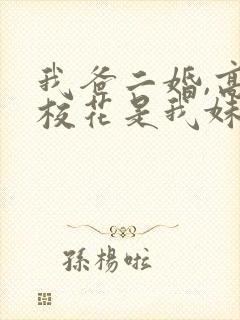 我爸二婚,高
校花是我妹
孫楊啦